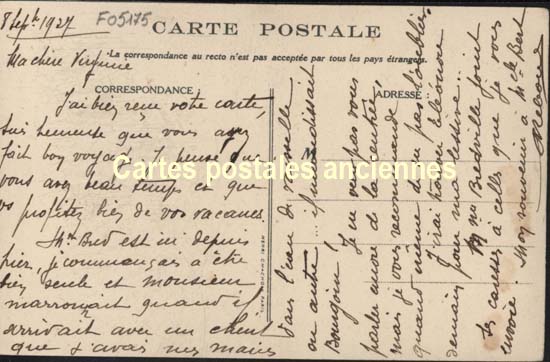 8 Sept. 1927
F05175
CARTE POSTALE
La correspondance au recto n'est pas acceptée par tous les pays étrangers.
CORRESPONDANCE
ADRESSE
Ma chère Virginie
J'ai bien reçu votre carte,
suis heureuse que vous ayez
fait bon voyage. Je pense que
vous avez beau temps et que
vs profitez bien de vos vacances.
Mr Bred est ici depuis
hier, je commençais à être
bien seule et monsieur
marronnait quand il
arrivait avec un client
que j'avais mes mains
dans l'eau de vaisselle
ou autre... il m'
Bourgoin!
Je ne veux pas vous
parler encore de la rentrée,
mais je vous recommande
quand même de ne pas m'oublier.
J'irai trouver Eléonore
demain pour ma lessive...
Mr Bredville joint
ses causes à celles que je vous
envoie. Mon souvenir à Mle Bert
Cartes postales anciennes